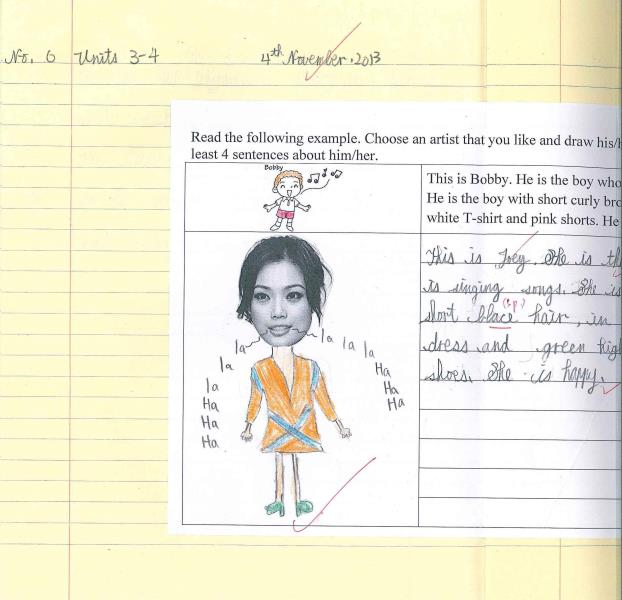 No. 6 Units 3-4 4th November, 2013
Read the following example. Choose an artist that you like and draw his/
least 4 sentences about him/her.
Bobby
This is Bobby. He is the boy who
He is the boy with short curly bro
white T-shirt and pink shorts. He
This is Joey. She is th
is singing songs. She is
(sp.)
short blace hair, in
dress and green hig
shoes. She is happy.
la
la
la
Ha
Ha
Ha
la
la
la
Ha
Ha
Ha